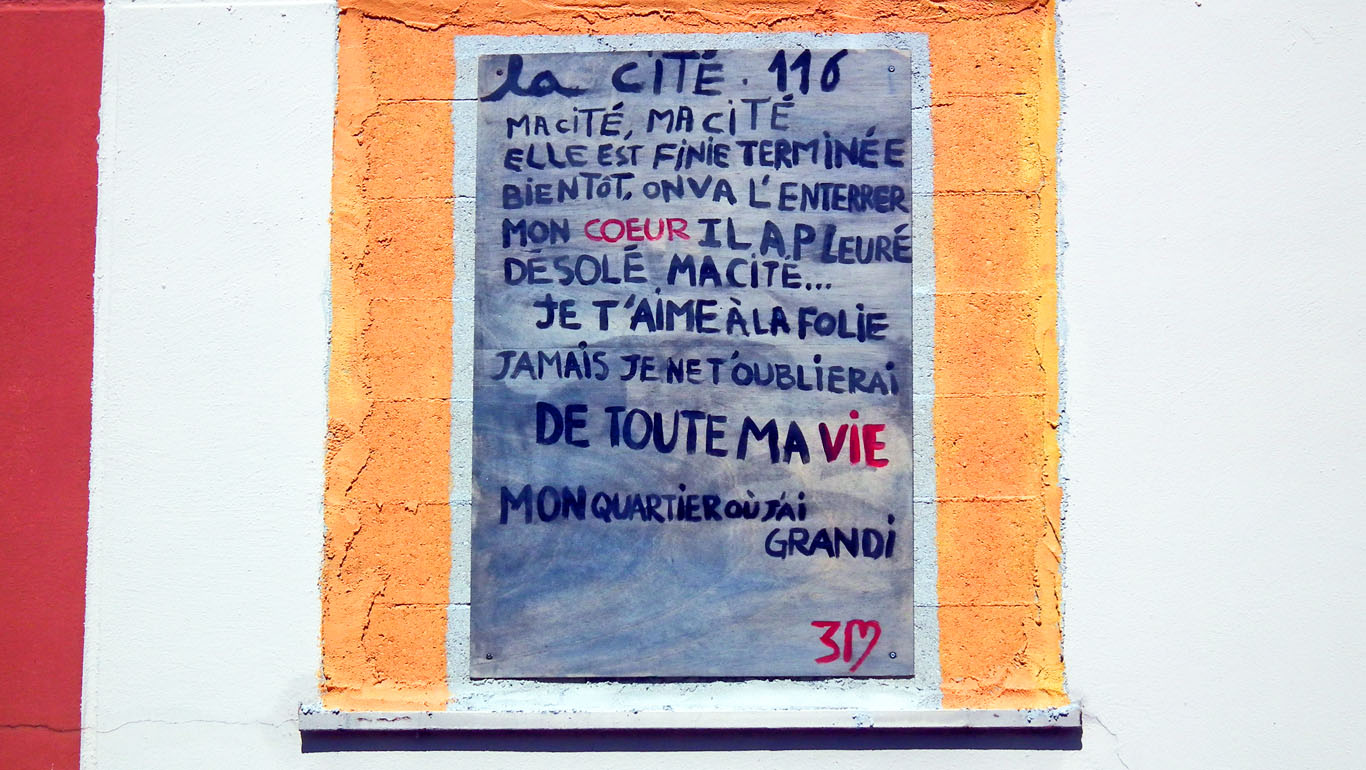 la CiTÉ . 116
MA CiTÉ, MA CiTÉ
ELLE EST FiNiE TERMiNÉE
BiENTÔT, ON VA L'ENTERRER
MON COEUR IL A PLEURÉ
DÉSOLÉ MA CITÉ...
JE T'AiME À LA FOLiE
JAMAiS JE NE T'OUBLiERAi
DE TOUTE MA ViE
MON QUARTiER OÙ J'Ai
GRANDi
3M